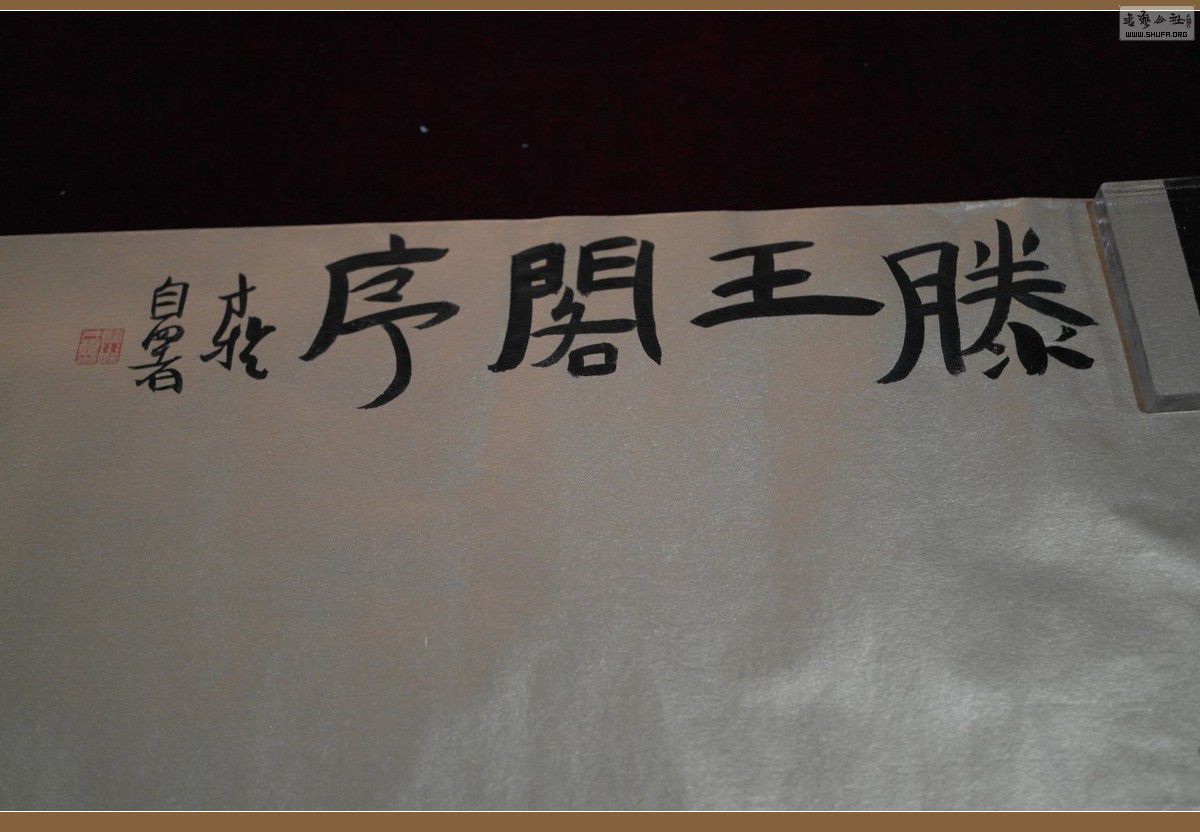 滕王閣序
自署
書藝公社
WWW.SHUFA.ORG